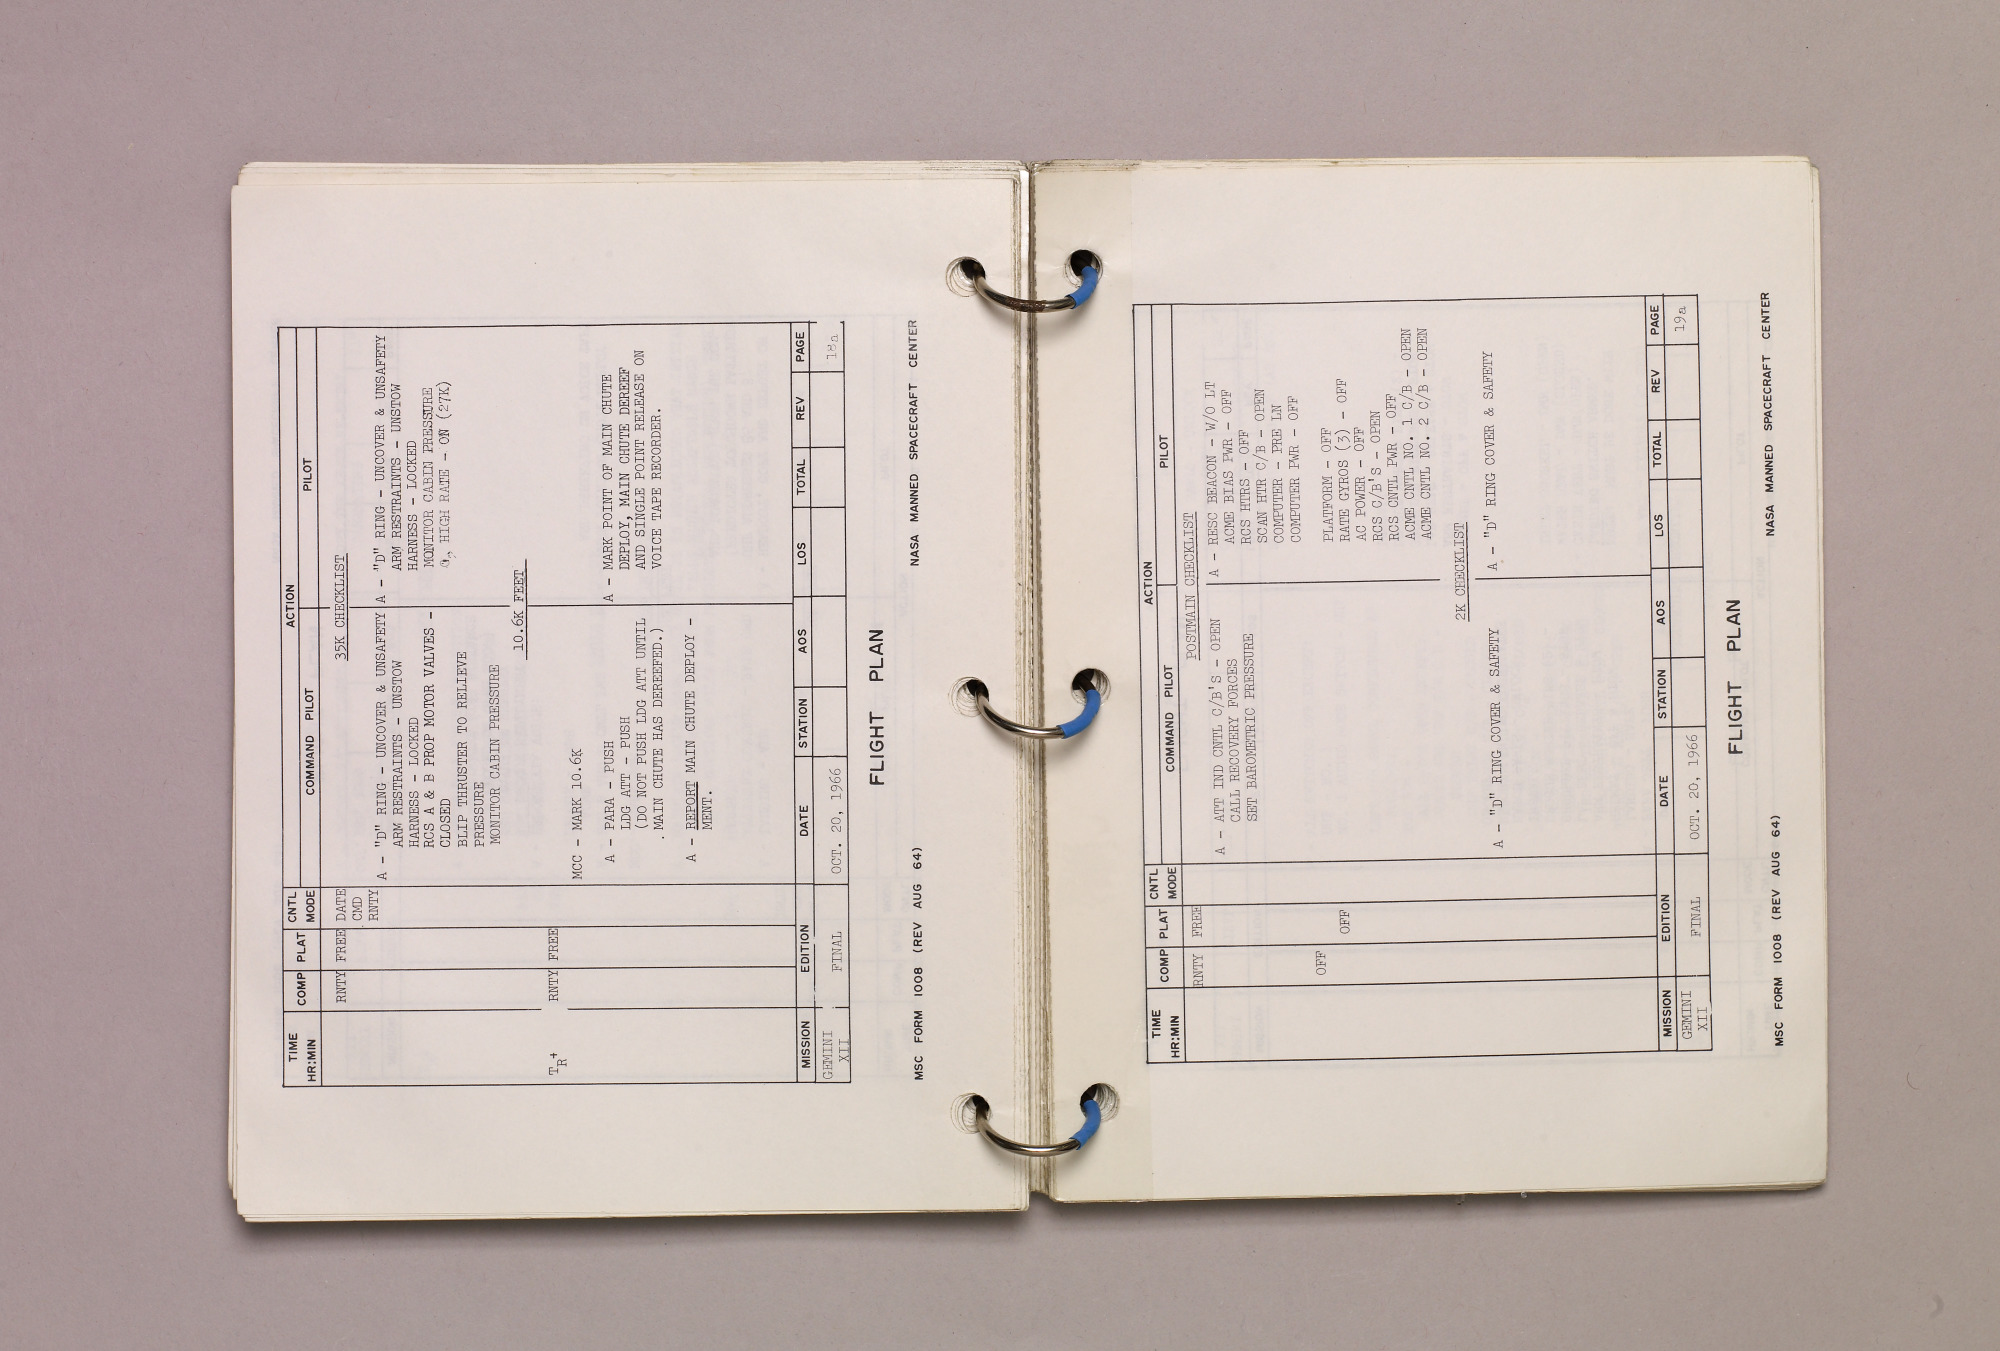 TIME
HR:MIN
COMP
PLAT
CNTL
MODE
ACTION
COMMAND PILOT
PILOT
35K CHECKLIST
RNTY
FREE
DATE
CMD
RNTY
A - "D" RING - UNCOVER & UNSAFETY
ARM RESTRAINTS - UNSTOW
HARNESS - LOCKED
RCS A & B PROP MOTOR VALVES -
CLOSED
BLIP THRUSTER TO RELIEVE
PRESSURE
MONITOR CABIN PRESSURE
A - "D" RING - UNCOVER & UNSAFETY
ARM RESTRAINTS - UNSTOW
HARNESS - LOCKED
MONITOR CABIN PRESSURE
HIGH RATE - ON (27K)
10.6K FEET
TR+
RNTY
FREE
MCC - MARK 10.6K
A - PARA - PUSH
LDG ATT - PUSH
(DO NOT PUSH LDG ATT UNTIL
MAIN CHUTE HAS DEREEFED.)
A - REPORT MAIN CHUTE DEPLOY -
MENT.
A - MARK POINT OF MAIN CHUTE
DEPLOY, MAIN CHUTE DEREEF
AND SINGLE POINT RELEASE ON
VOICE TAPE RECORDER.
MISSION EDITION DATE STATION AOS LOS TOTAL REV PAGE
GEMINI
XII
FINAL
OCT. 20, 1966
18a
FLIGHT PLAN
MSC FORM 1008 (REV AUG 64)
NASA MANNED SPACECRAFT CENTER
TIME
HR:MIN
COMP
PLAT
CNTL
MODE
ACTION
COMMAND PILOT
PILOT
POSTMAIN CHECKLIST
RNTY
FREE
A - ATT IND CNTL C/B'S - OPEN
CALL RECOVERY FORCES
SET BAROMETRIC PRESSURE
A - RESC BEACON - W/O LT
ACME BIAS PWR - OFF
RCS HTRS - OFF
SCAN HTR C/B - OPEN
COMPUTER - PRE LN
COMPUTER PWR - OFF
OFF
OFF
PLATFORM - OFF
RATE GYROS (3) - OFF
AC POWER - OFF
RCS C/B'S - OPEN
RCS CNTL PWR - OFF
ACME CNTL NO. 1 C/B - OPEN
ACME CNTL NO. 2 C/B - OPEN
2K CHECKLIST
A - "D" RING COVER & SAFETY
A - "D" RING COVER & SAFETY
MISSION EDITION DATE STATION AOS LOS TOTAL REV PAGE
GEMINI
XII
FINAL
OCT. 20, 1966
19a
FLIGHT PLAN
MSC FORM 1008 (REV AUG 64)
NASA MANNED SPACECRAFT CENTER